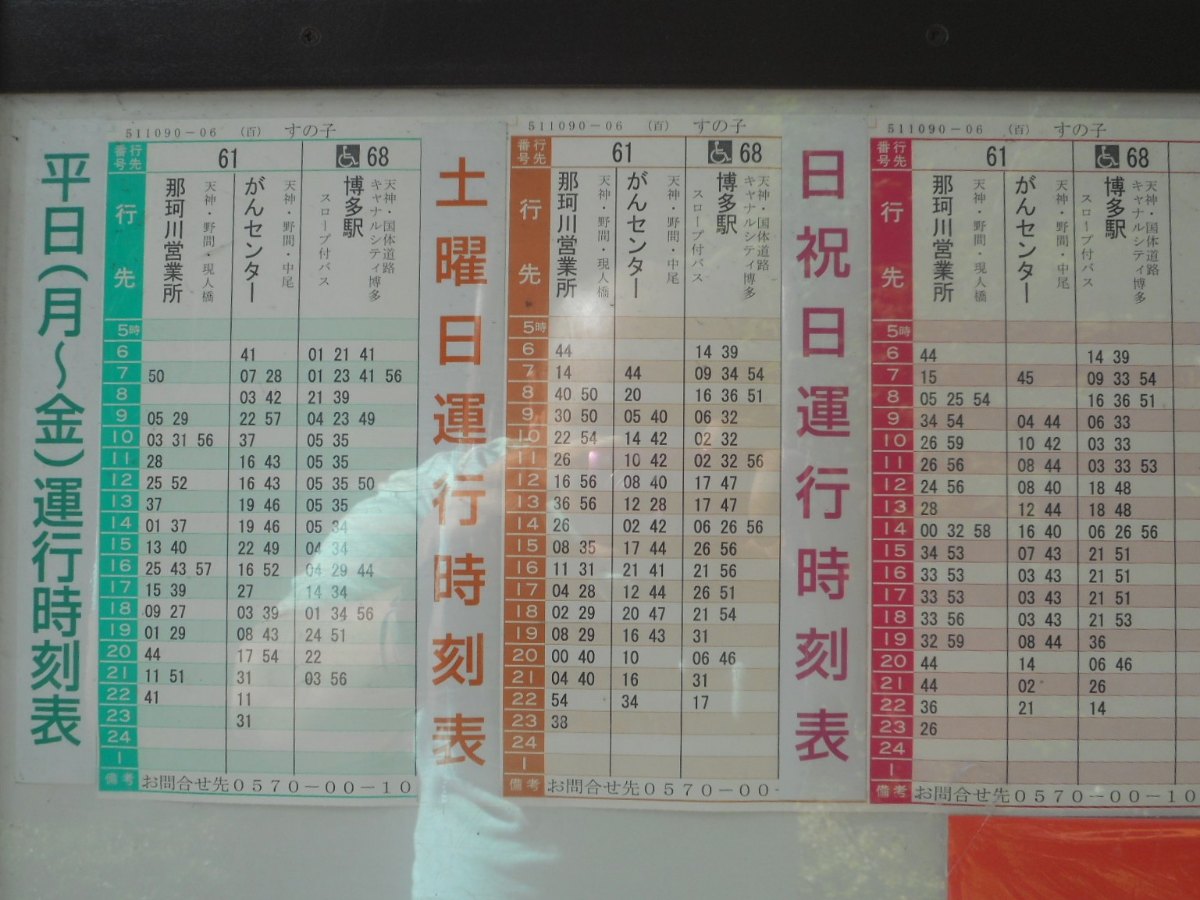 平日(月～金)運行時刻表
511090-06 (百) すの子
行先番号 61 68
行先
那珂川営業所 天神・野間・現人橋
がんセンター 天神・野間・中尾
博多駅 天神・国体道路 キャナルシティ博多 スロープ付バス
5時
6 41 01 21 41
7 50 07 28 01 23 41 56
8 03 42 21 39
9 05 29 22 57 04 23 49
10 03 31 56 37 05 35
11 28 16 43 05 35
12 25 52 16 43 05 35 50
13 37 19 46 05 35
14 01 37 19 46 05 34
15 13 40 22 49 04 34
16 25 43 57 16 52 04 29 44
17 15 39 27 14 34
18 09 27 03 39 01 34 56
19 01 29 08 43 24 51
20 44 17 54 22
21 11 51 31 03 56
22 41 11
23 31
24
1
備考 お問合せ先0570-00-10
土曜日運行時刻表
511090-06 (百) すの子
行先番号 61 68
行先
那珂川営業所 天神・野間・現人橋
がんセンター 天神・野間・中尾
博多駅 天神・国体道路 キャナルシティ博多 スロープ付バス
5時
6 44 14 39
7 14 44 09 34 54
8 40 50 20 16 36 51
9 30 50 05 40 06 32
10 22 54 14 42 02 32
11 26 10 42 02 32 56
12 16 56 08 40 17 47
13 36 56 12 28 17 47
14 26 02 42 06 26 56
15 08 35 17 44 26 56
16 11 31 21 41 21 56
17 04 28 12 44 26 51
18 02 29 20 47 21 54
19 08 29 16 43 31
20 00 40 10 06 46
21 04 40 16 31
22 54 34 17
23 38
24
1
備考 お問合せ先0570-00-
日祝日運行時刻表
511090-06 (百) すの子
行先番号 61 68
行先
那珂川営業所 天神・野間・現人橋
がんセンター 天神・野間・中尾
博多駅 天神・国体道路 キャナルシティ博多 スロープ付バス
5時
6 44 14 39
7 15 45 09 33 54
8 05 25 54 16 36 51
9 34 54 04 44 06 33
10 26 59 10 42 03 33
11 26 56 08 44 03 33 53
12 24 56 08 40 18 48
13 28 12 44 18 48
14 00 32 58 16 40 06 26 56
15 34 53 07 43 21 51
16 33 53 03 43 21 51
17 33 53 03 43 21 51
18 33 56 03 43 21 53
19 32 59 08 44 36
20 44 14 06 46
21 44 02 26
22 36 21 14
23 26
24
1
備考 お問合せ先0570-00-10